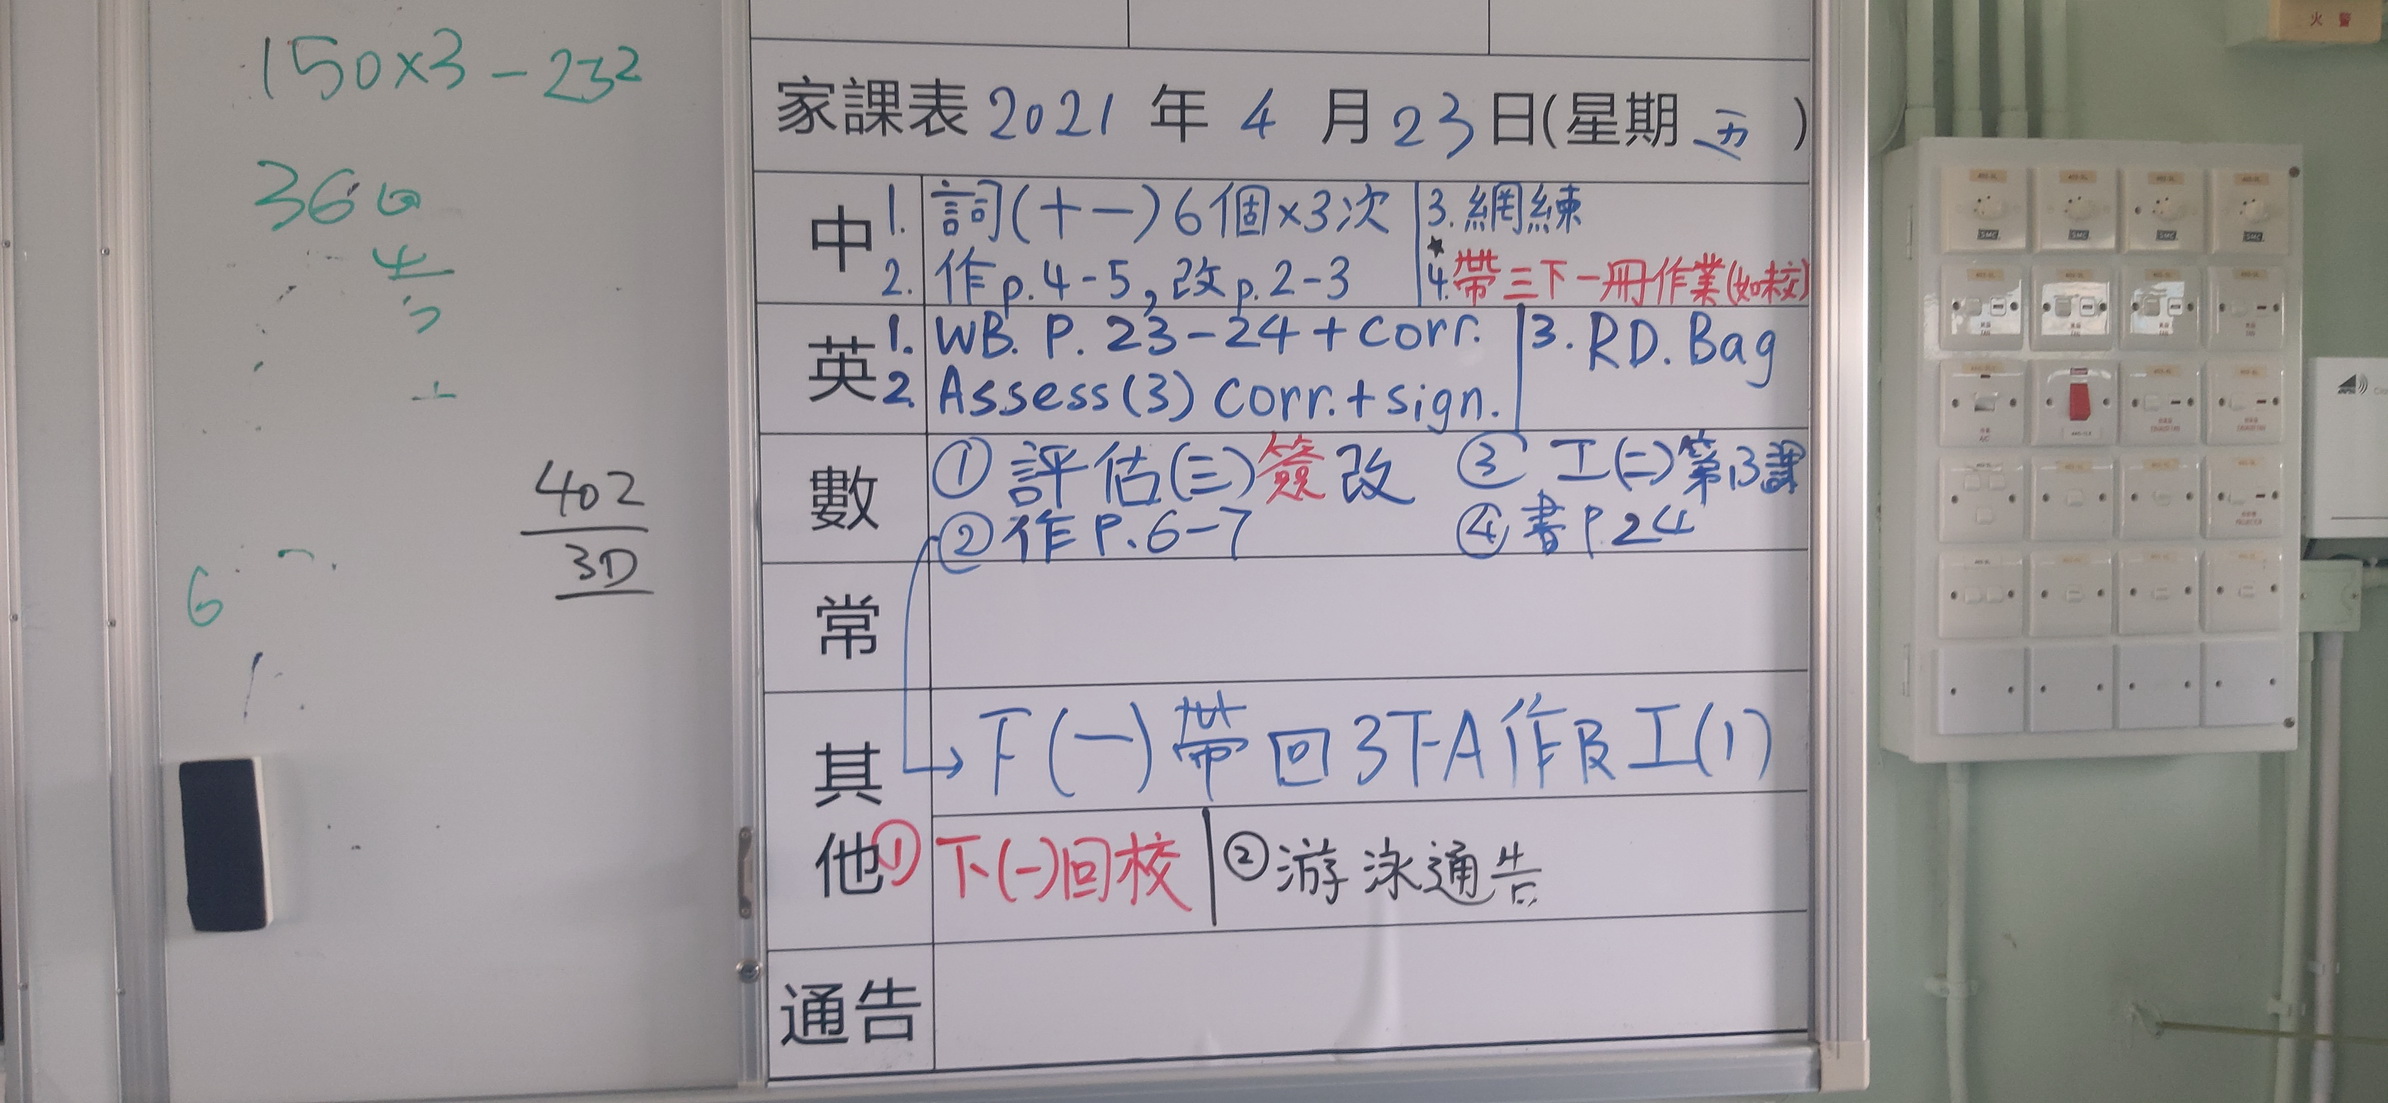 150×3-232
36
6
402
3D
家課表 2021 年 4 月 23 日(星期 五 )
中
1. 詞(十一)6個×3次
2. 作p.4-5,改p.2-3
3. 網練
★
4. 帶三下一冊作業(如未交)
英
1. WB. P. 23-24+corr.
2. Assess(3) corr.+sign.
3. RD. Bag
數
① 評估(三)簽改
② 作P.6-7
③ 工(二)第13課
④ 書P.24
常
其他
→下(一)帶回3下A作及工(1)
① 下(一)回校
② 游泳通告
通告
火警